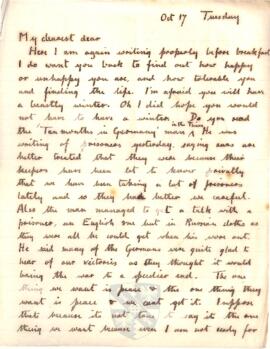 Oct 17 Tuesday
My dearest dear
Here I am again writing properly before breakfast
I do want you back to find out how happy
or unhappy you are, and how tolerable you
are finding the life. I'm afraid you will have
a beastly winter. Oh I did hope you would
not have to have a winter. Do you read
the "Ten months in Germany" man in the Times He was
writing of prisoners yesterday, saying ours are
better treated than they were because their
keepers have been let to know privately
that we have been taking a lot of prisoners
lately and so they had better be careful.
Also the man managed to get a talk with a
prisoner, an English one but in Russian clothes as
they were all he could get when his wore out.
He said many of the Germans were quite glad to
hear of our victories as they thought it would
bring the war to a speedier end. The one
thing we want is peace & the one thing they
want is peace & we can't get it. I suppose
that's because it's not true to say it's the one
thing we want because even I am not ready for